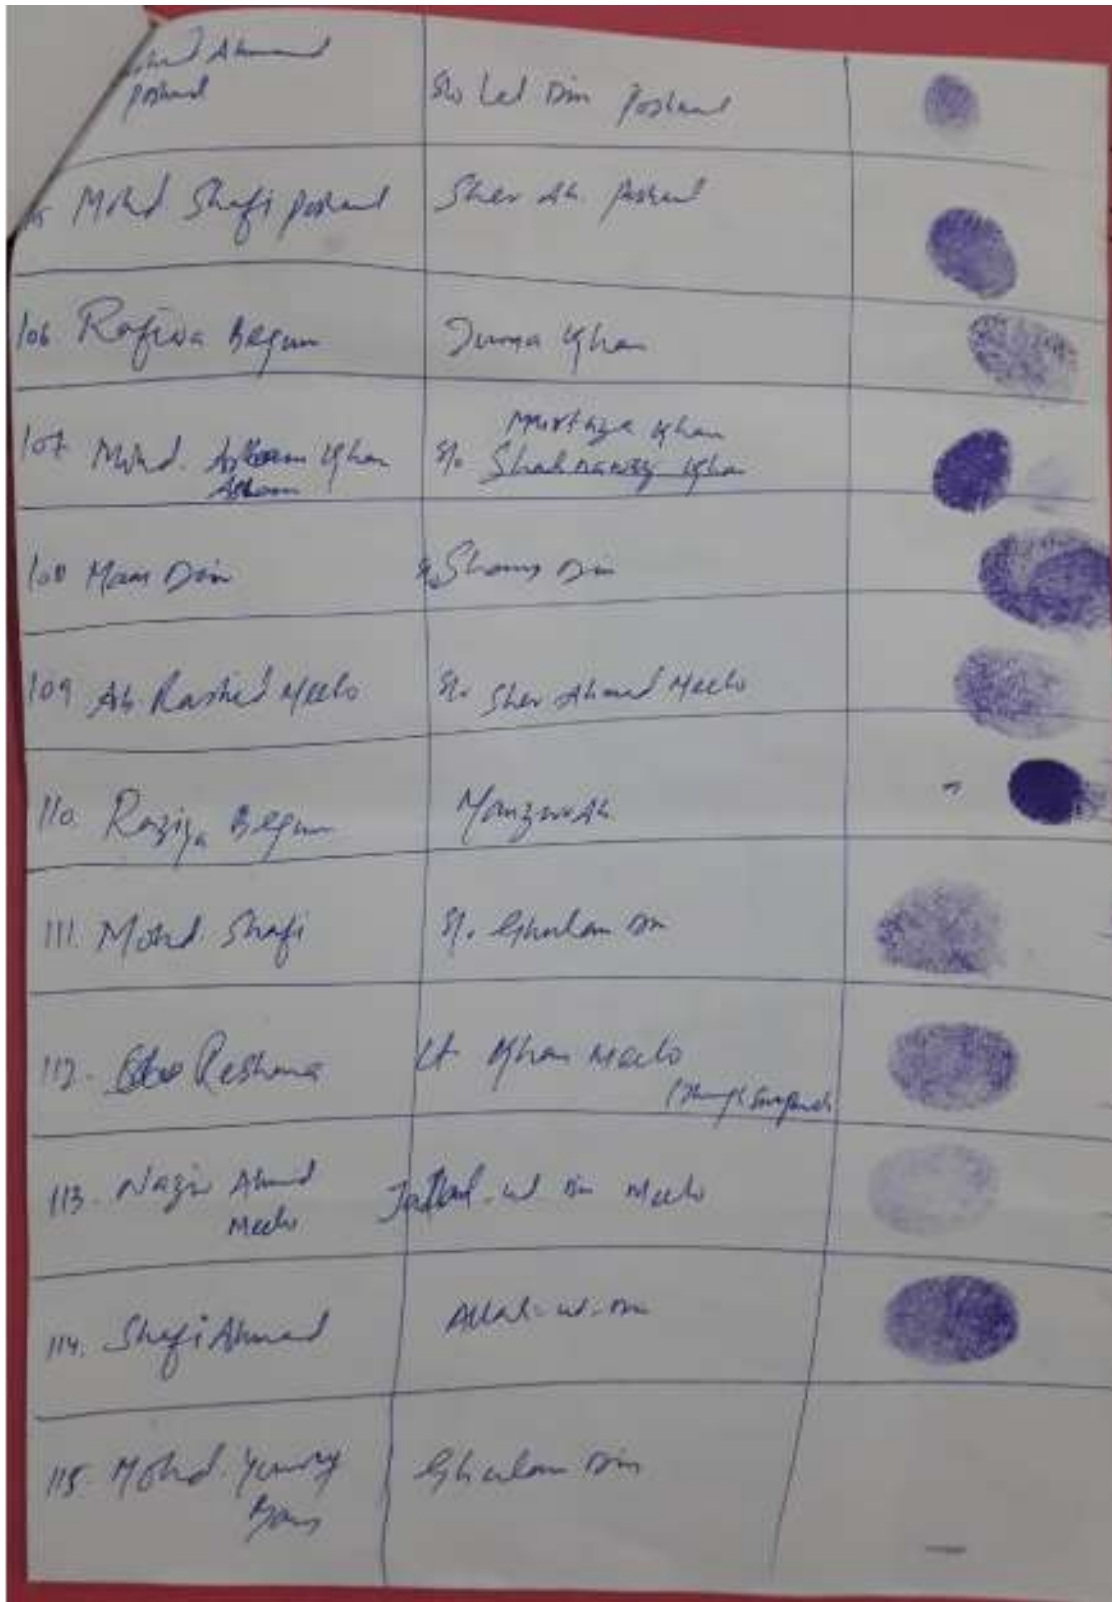 Ahmad
Poshwal S/o Lal Din Poshwal
Mohd. Shafi Poshwal Sher Ah. Poshwal
106 Rafiqa Begum Juma Khan
Murtaza Khan
107 Mohd. Aslam Khan S/o Shahnawaz Khan
Aslam
108 Mam Din S/o Shams Din
109 Ab. Rashid Meelo S/o Sher Ahmad Meelo
110. Raziya Begum Manzoor Ah.
111. Mohd. Shafi S/o Ghulam Din
112. Reshma Lt. Khan Meelo
113. Nazir Ahmad ud Din Meelo
Meelo
114. Shafi Ahmad Allah-ud-Din
115. Mohd. Ghulam Din